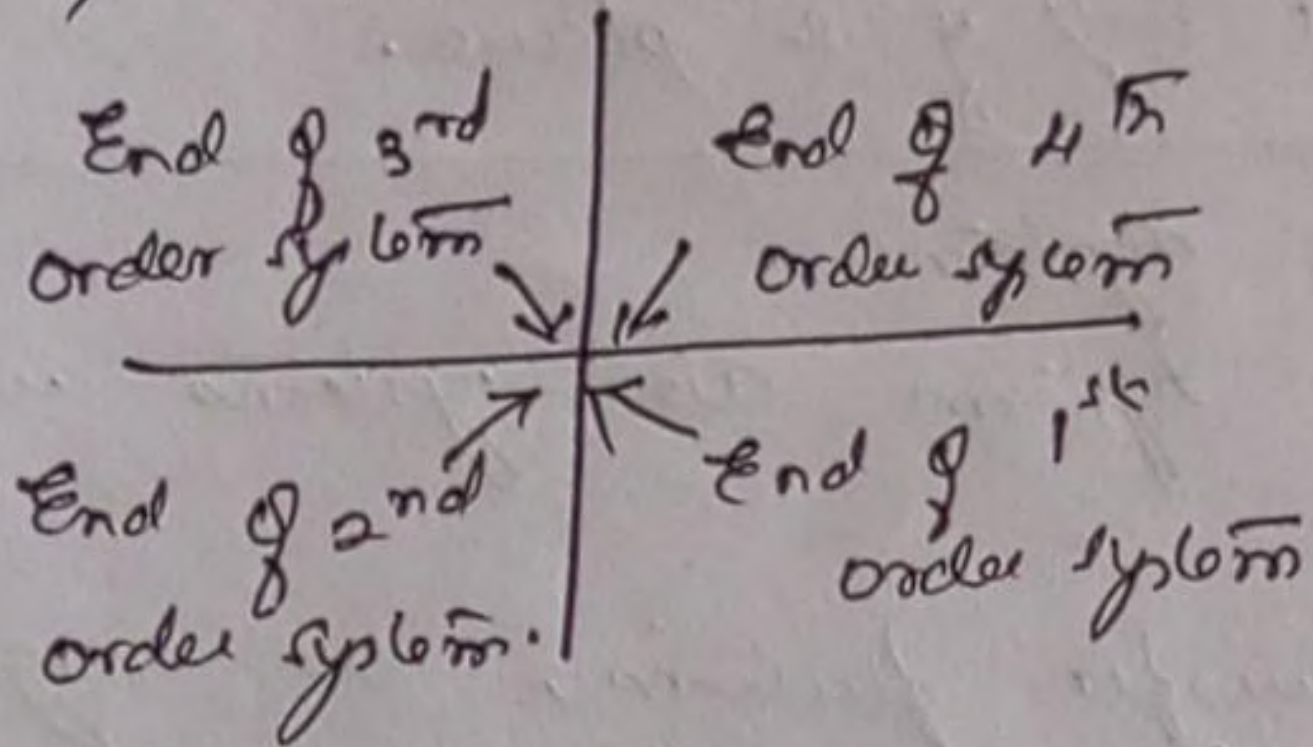 End of 3rd
order system
End of 4th
order system
End of 2nd
order system.
End of 1st
order system